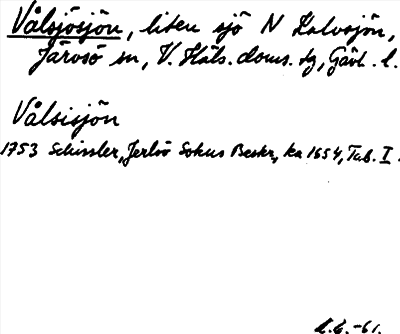 Vålsjösjön, liten sjö N Kalvsjön,
Järvsö sn, V. Häls. doms. tg, Gävl. l.
Vålsisjön
1753 Schissler, Jerlsö Sokns Beskr, ka 1654, Tab. I.
-61.